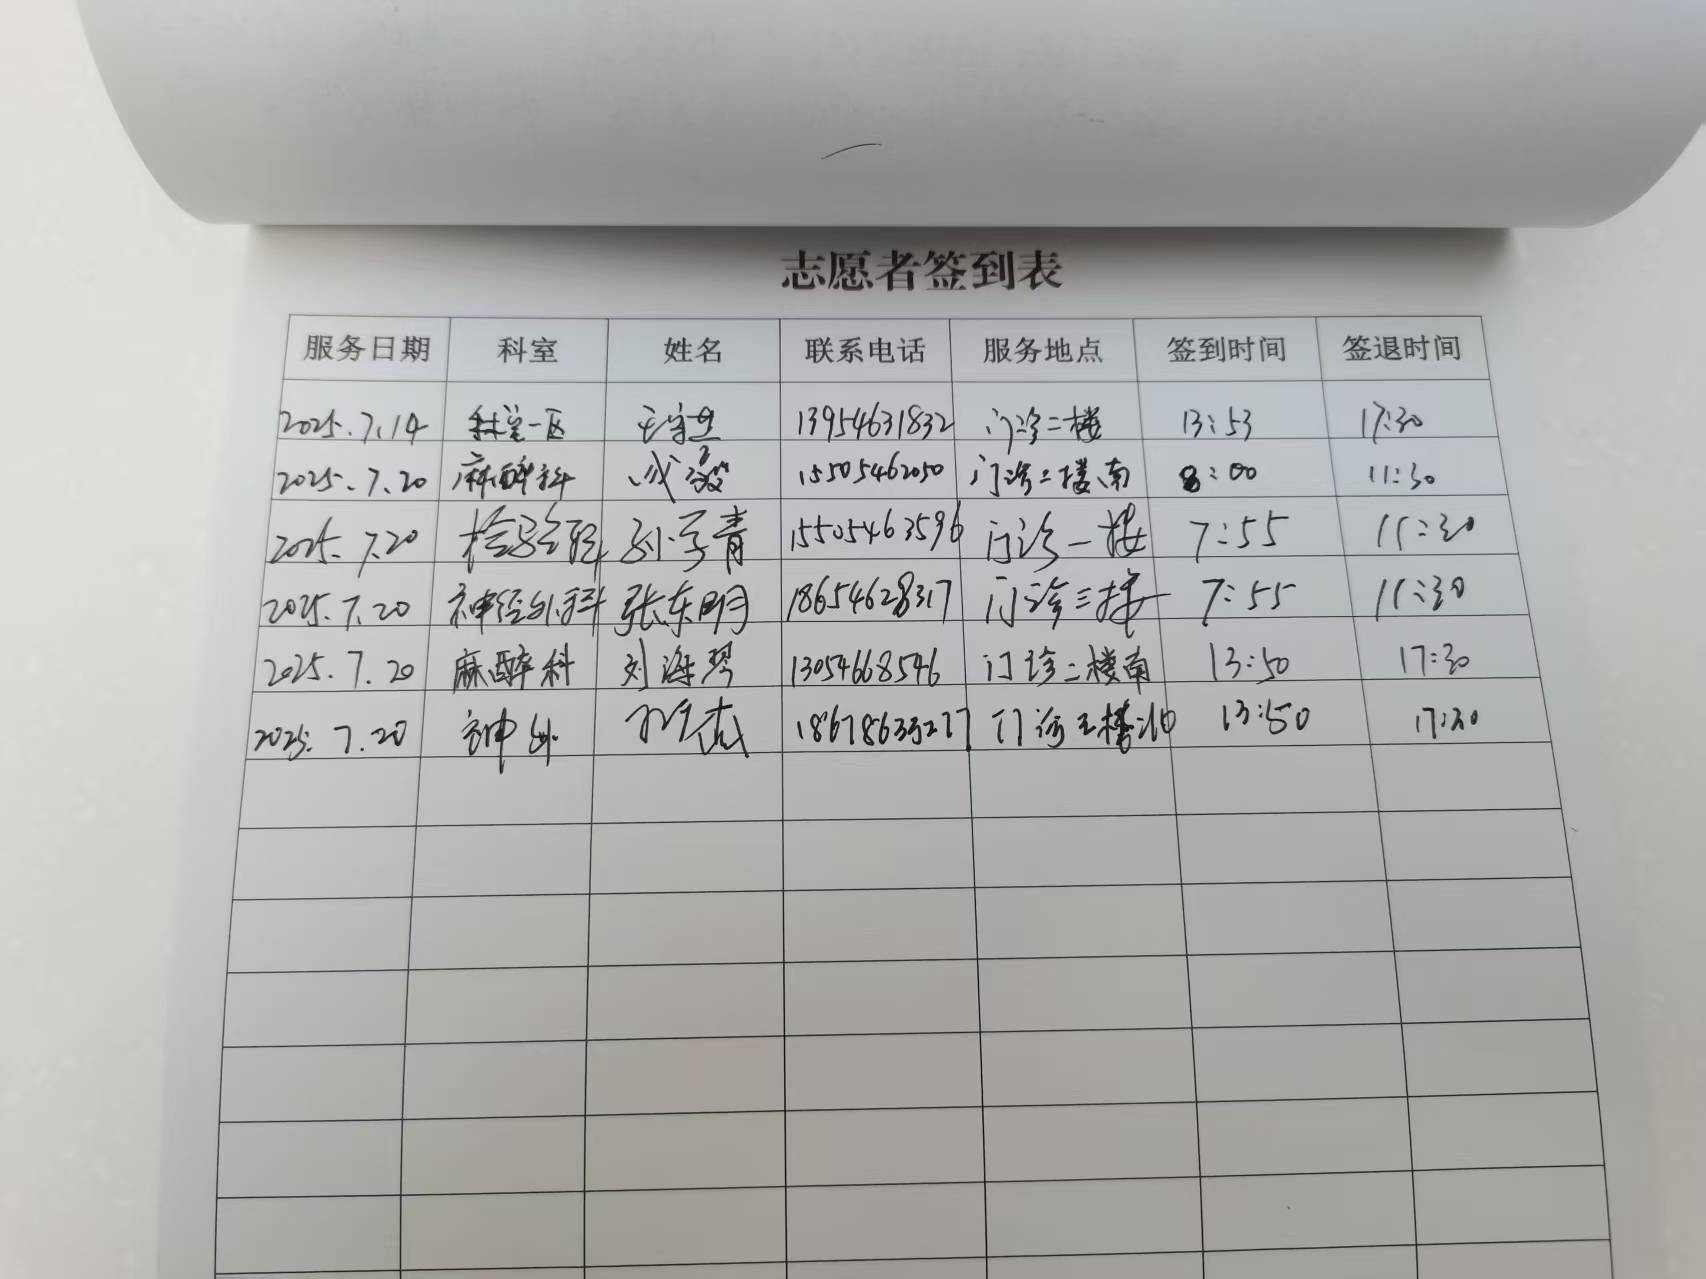 志愿者签到表
服务日期 科室 姓名 联系电话 服务地点 签到时间 签退时间
2025.7.14 一区 13954631832 门诊二楼 13:53 17:30
2025.7.20 麻醉科 15505462050 门诊二楼南 8:00 11:30
2025.7.20 检验科 孙学青 15505463596 门诊一楼 7:55 11:30
2025.7.20 神经外科 张东明 18654628317 门诊三楼 7:55 11:30
2025.7.20 麻醉科 刘海琴 13054668546 门诊二楼南 13:50 17:30
2025.7.20 神外 门诊三楼北 13:50 17:30